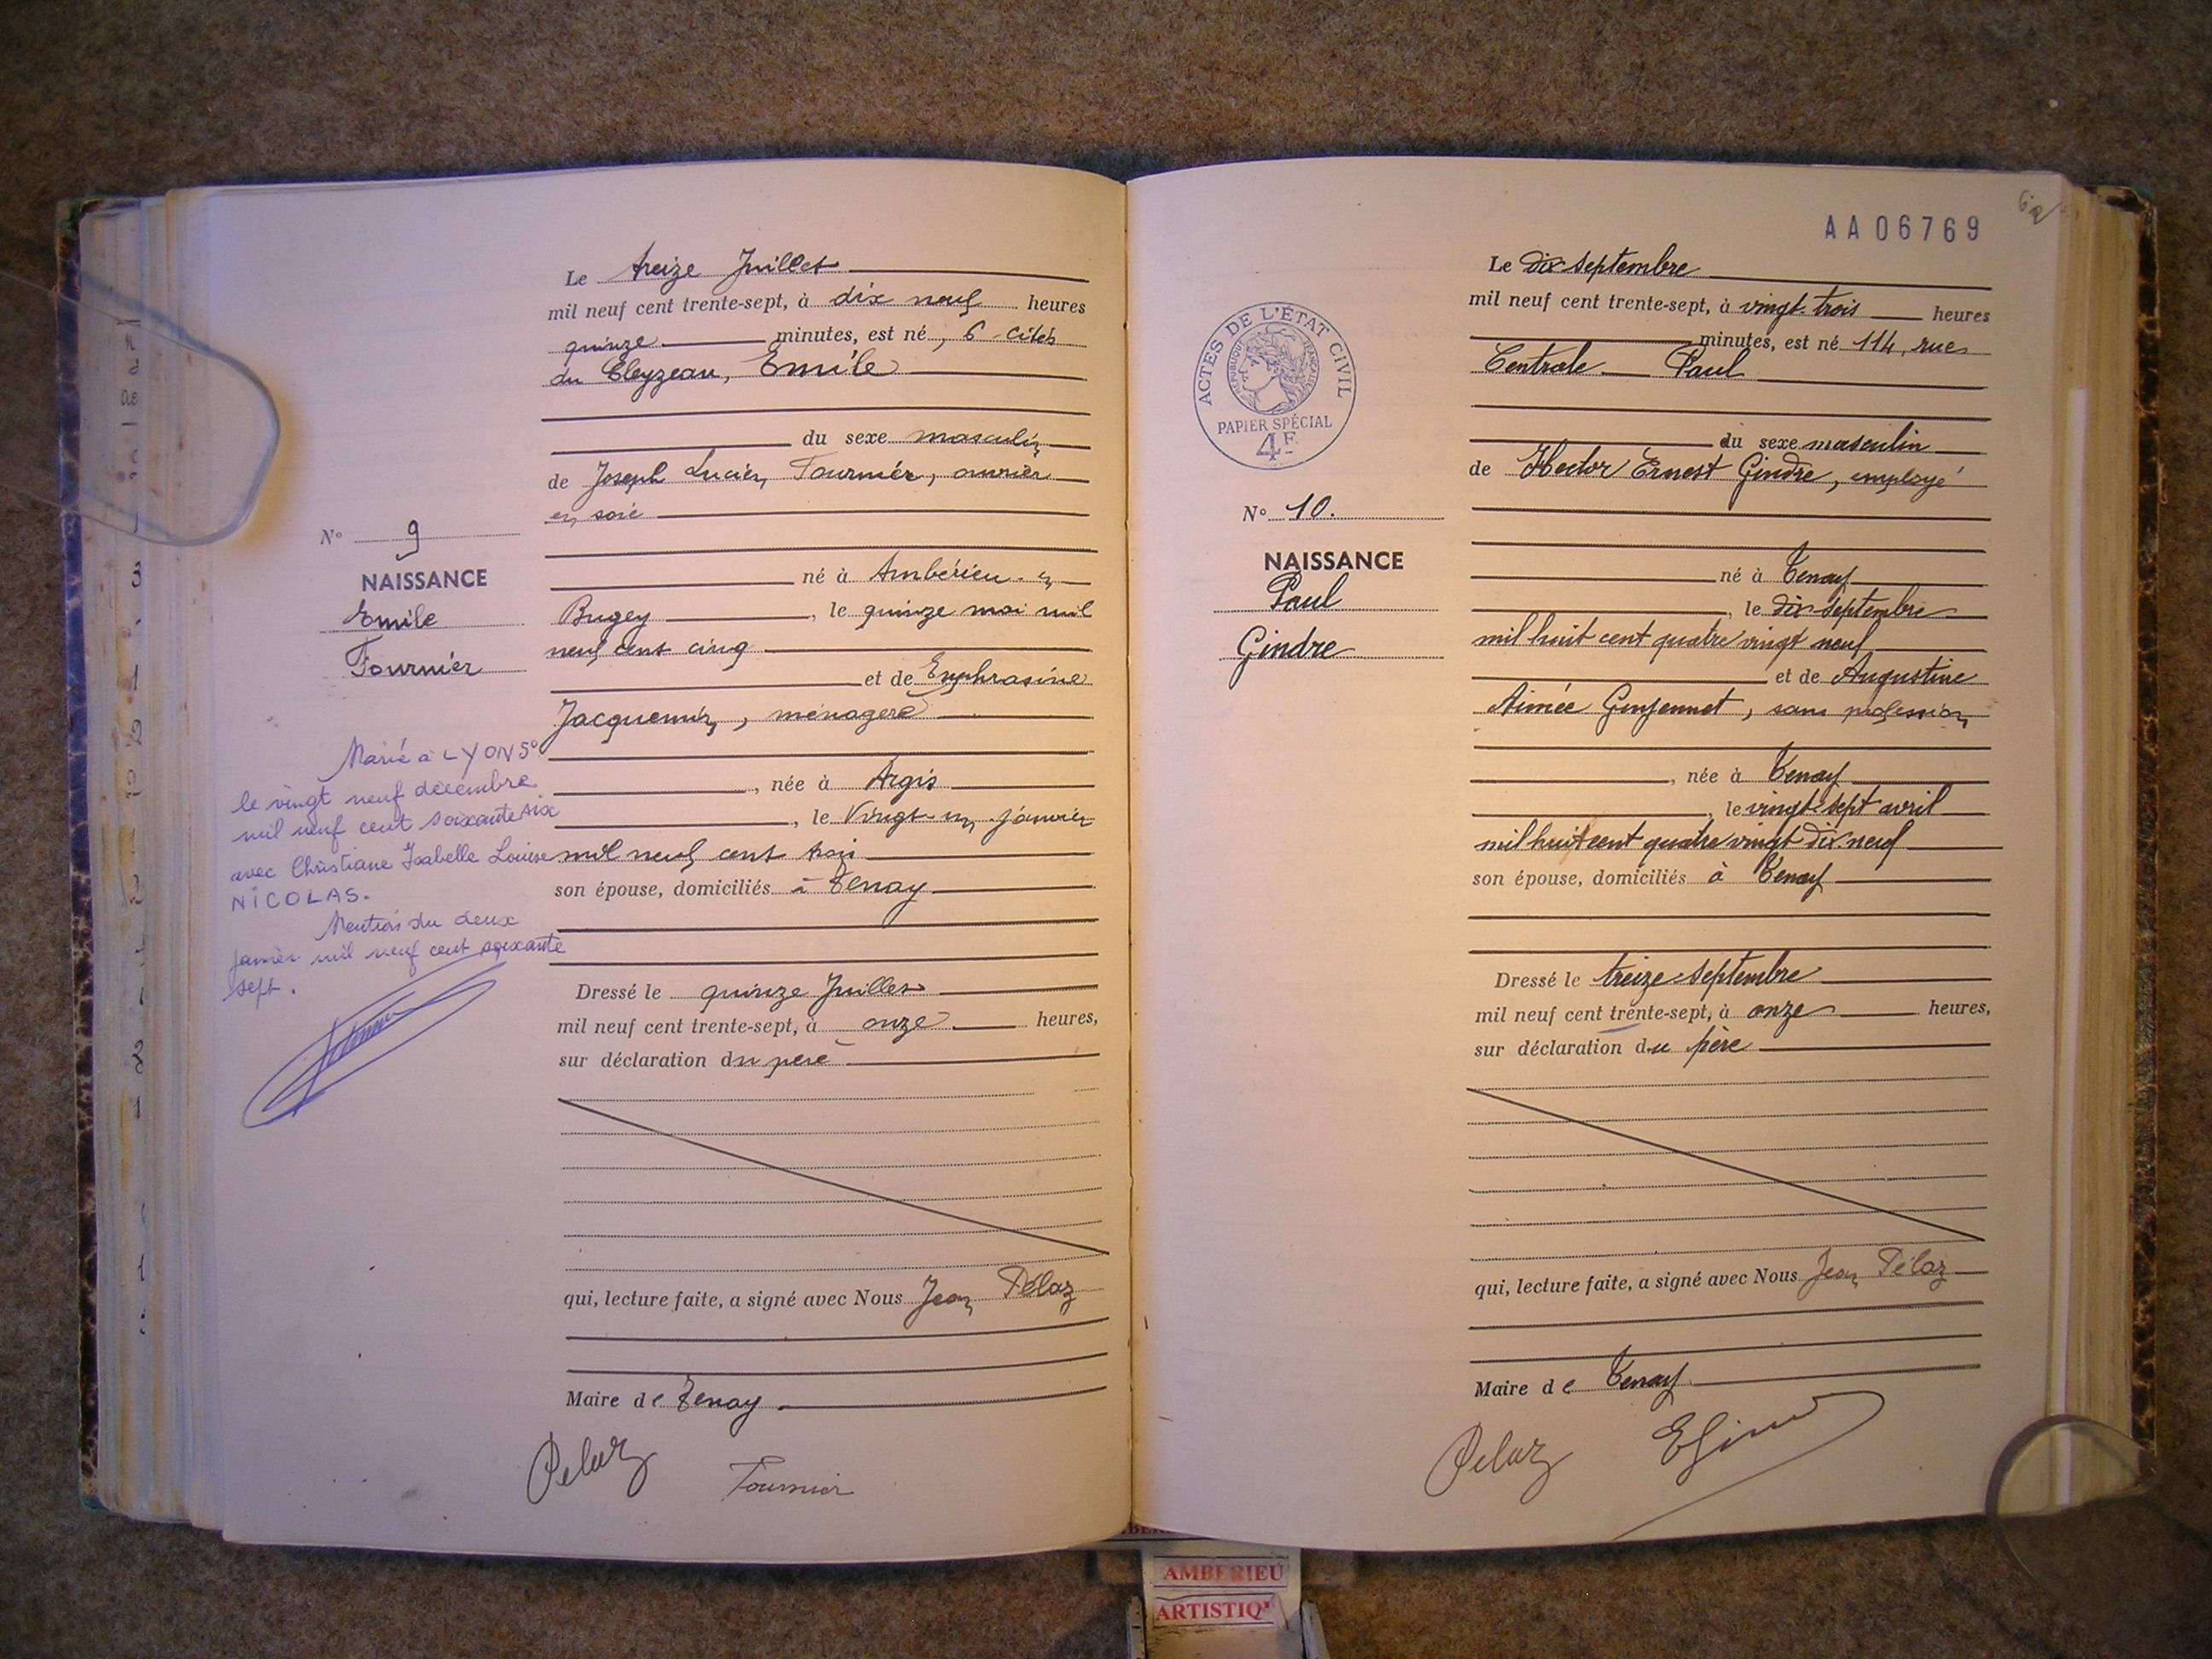 Le treize Juillet
mil neuf cent trente-sept, à dix neuf heures
quinze minutes, est né, 6 cités
du Cleyzeau, Emile
du sexe masculin
de Joseph Lucien Fournier, ouvrier
en soie
né à Ambérieu-en
Bugey, le quinze mai mil
neuf cent cinq
et de Euphrasine
Jacquemin, ménagère
, née à Argis
, le Vingt-un janvier
mil neuf cent trois
son épouse, domiciliés à Tenay
Dressé le quinze Juillet
mil neuf cent trente-sept, à onze heures,
sur déclaration du père
qui, lecture faite, a signé avec Nous Jean Pélaz
Maire de Tenay
Pelaz Fournier
N° 9
NAISSANCE
Emile
Fournier
Marié à LYON 5°
le vingt neuf décembre
mil neuf cent soixante six
avec Christiane Isabelle Louise
NICOLAS.
Mention du deux
janvier mil neuf cent soixante
sept.
AA06769
ACTES DE L'ÉTAT CIVIL
RÉPUBLIQUE FRANÇAISE
PAPIER SPÉCIAL
4F
N° 10.
NAISSANCE
Paul
Gindre
Le dix septembre
mil neuf cent trente-sept, à vingt-trois heures
minutes, est né 114, rue
Centrale Paul
du sexe masculin
de Hector Ernest Gindre, employé
né à Tenay
, le dix septembre
mil huit cent quatre vingt neuf
et de Augustine
Aimée , sans profession
, née à Tenay
, le vingt-sept avril
mil huit cent quatre vingt dix neuf
son épouse, domiciliés à Tenay
Dressé le treize septembre
mil neuf cent trente-sept, à onze heures,
sur déclaration du père
qui, lecture faite, a signé avec Nous Jean Pélaz
Maire de Tenay
Pelaz
AMBERIEU
ARTISTIQ'